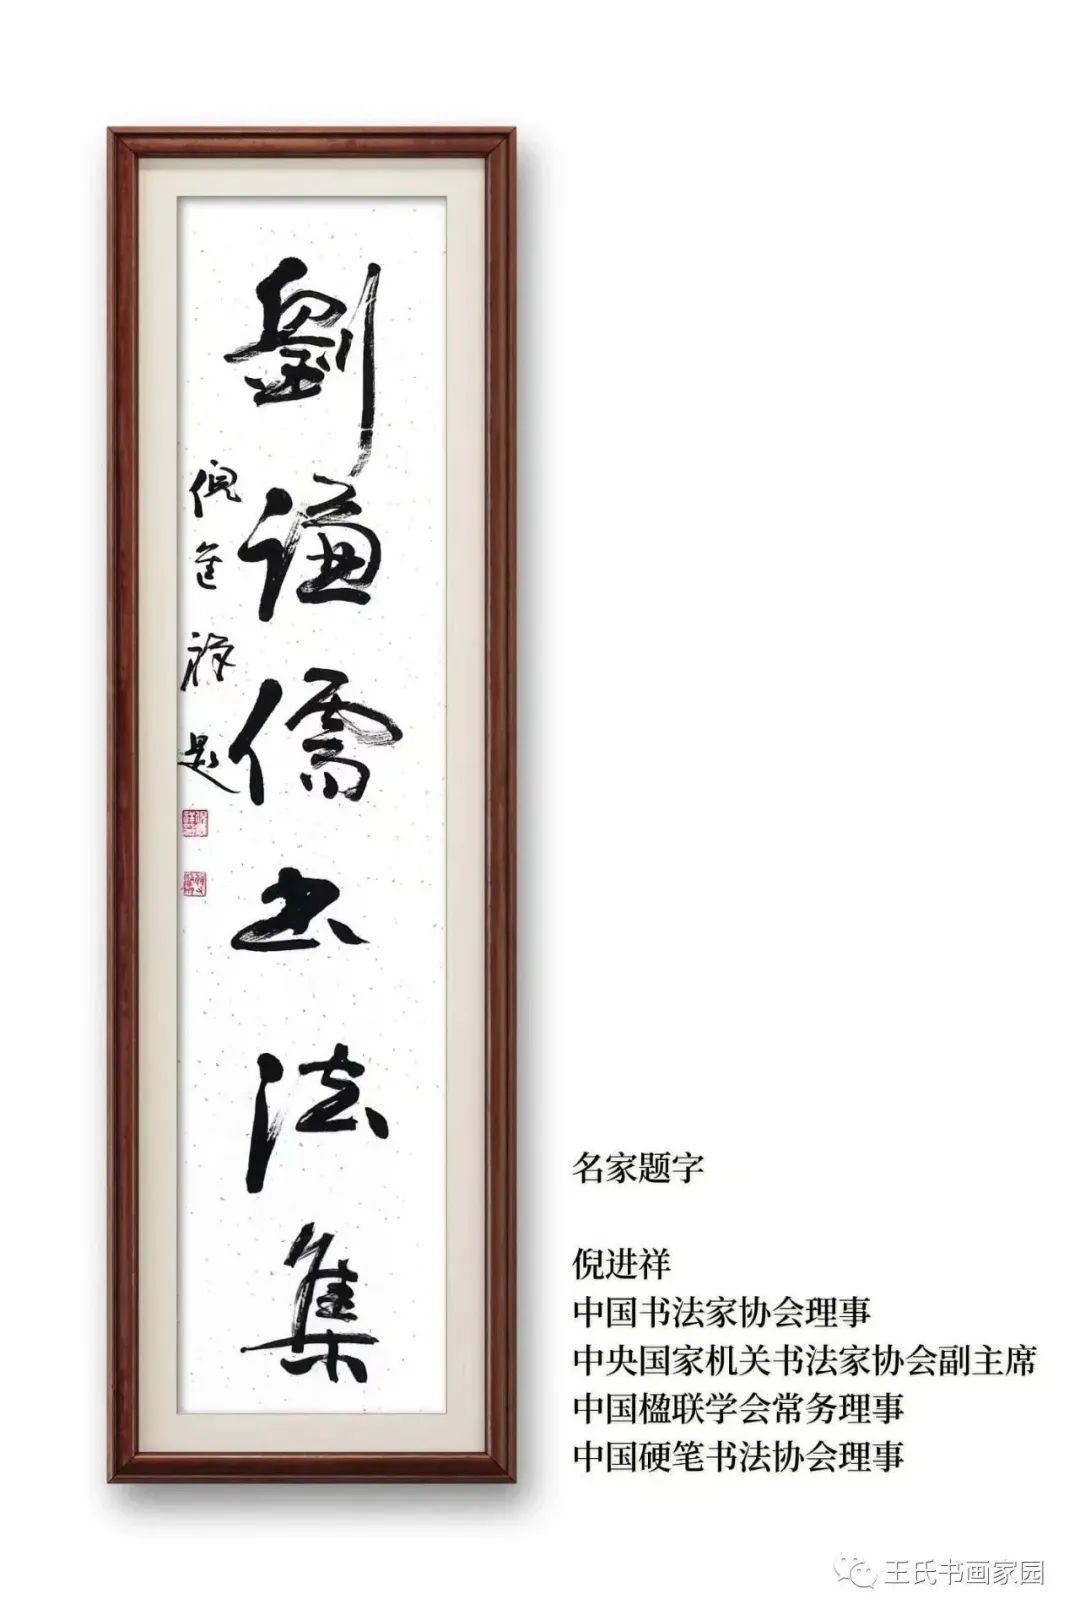 劉谦儒书法集
倪進祥題
名家题字
倪进祥
中国书法家协会理事
中央国家机关书法家协会副主席
中国楹联学会常务理事
中国硬笔书法协会理事
王氏书画家园